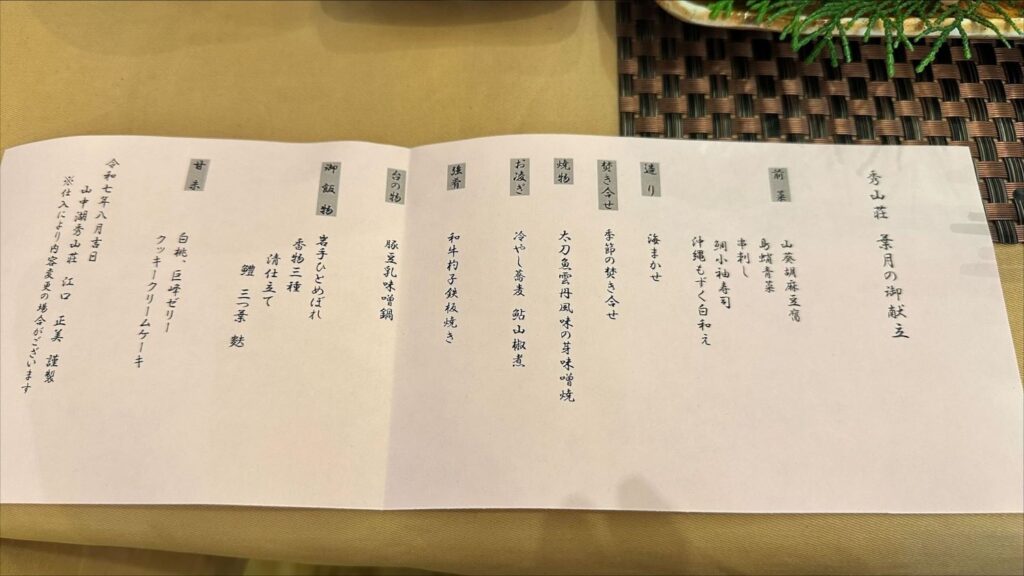 秀山荘 葉月の御献立
前菜
山葵胡麻豆腐
烏蛸青菜
串刺し
鯛小袖寿司
沖縄もずく白和え
造り
海まかせ
焚き合せ
季節の焚き合せ
焼物
太刀魚雲丹風味の芽味噌焼
お凌ぎ
冷やし蕎麦 鮎山椒煮
強肴
和牛杓子鉄板焼き
台の物
豚豆乳味噌鍋
御飯物
岩手ひとめぼれ
香物三種
清仕立て
鱧 三つ葉 麩
甘味
白桃、巨峰ゼリー
クッキークリームケーキ
令和七年八月吉日
山中湖秀山荘 江口 正美 謹製
※仕入により内容変更の場合がございます